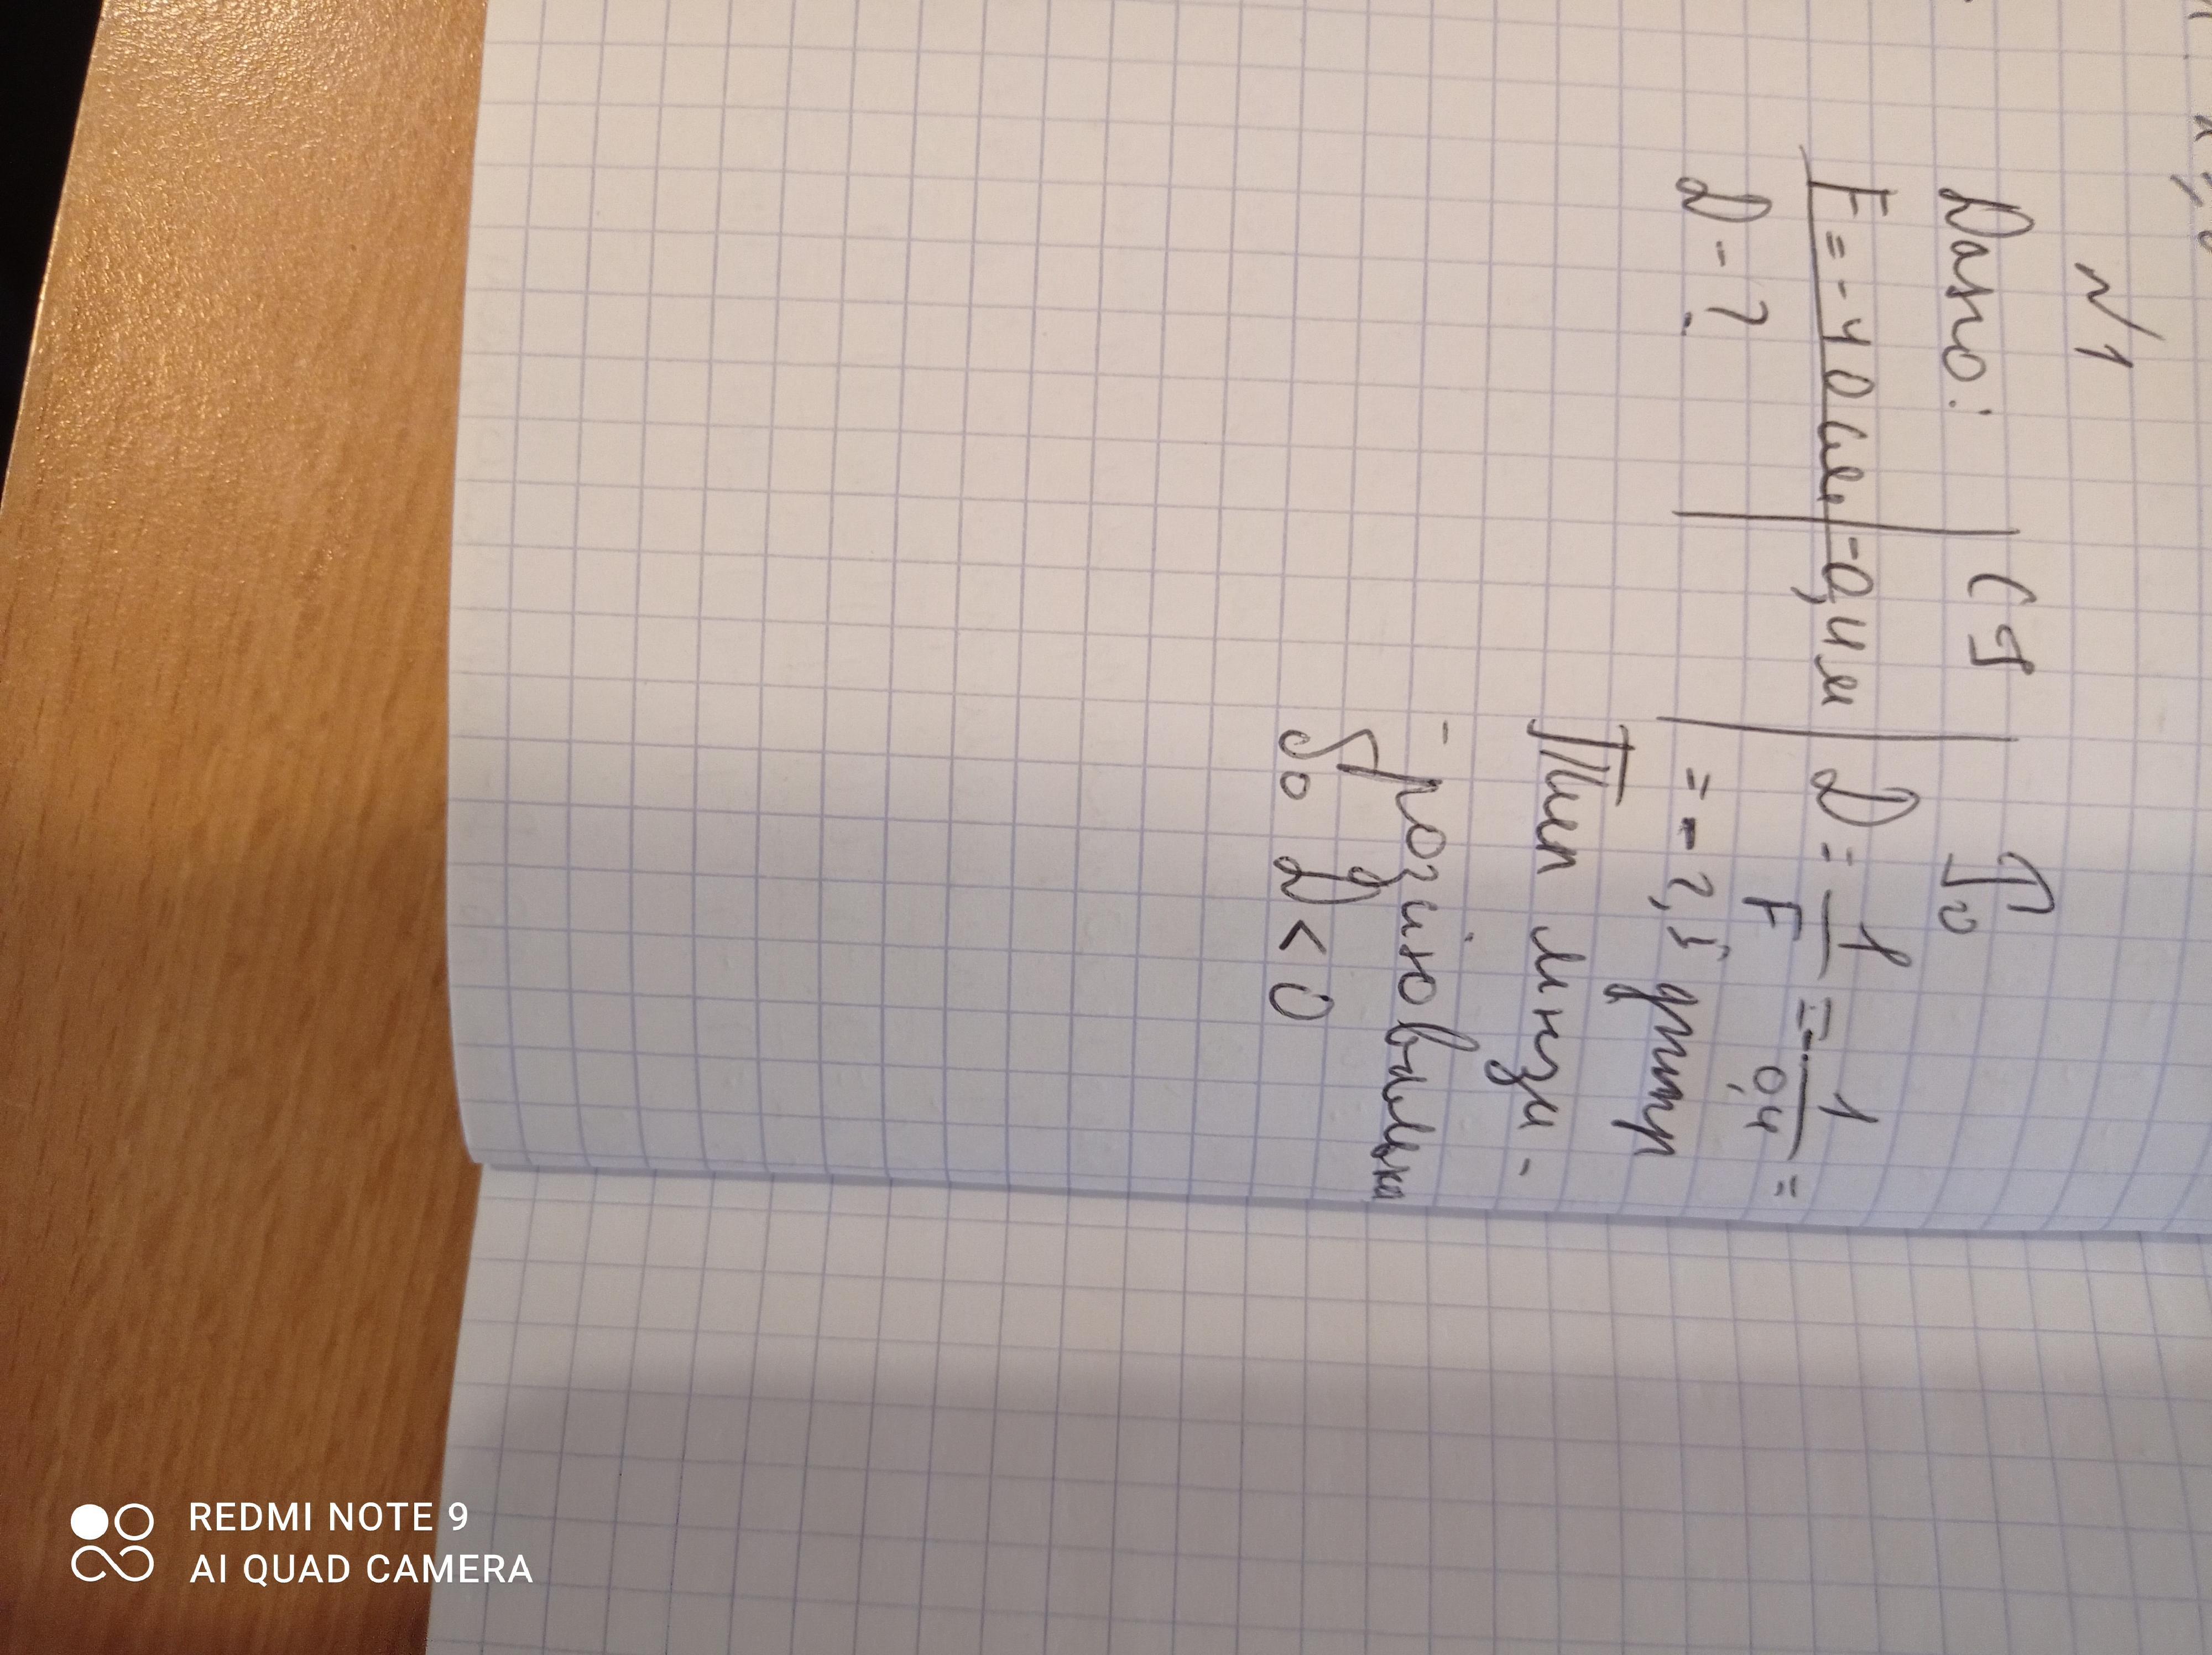 N1
Дано: СІ Р
F = -40 см -0,4 м D = 1/F = - 1/0,4 =
D - ? = -2,5 дптр
Тип лнзи -
- розсіювальна
бо D < 0
REDMI NOTE 9
AI QUAD CAMERA